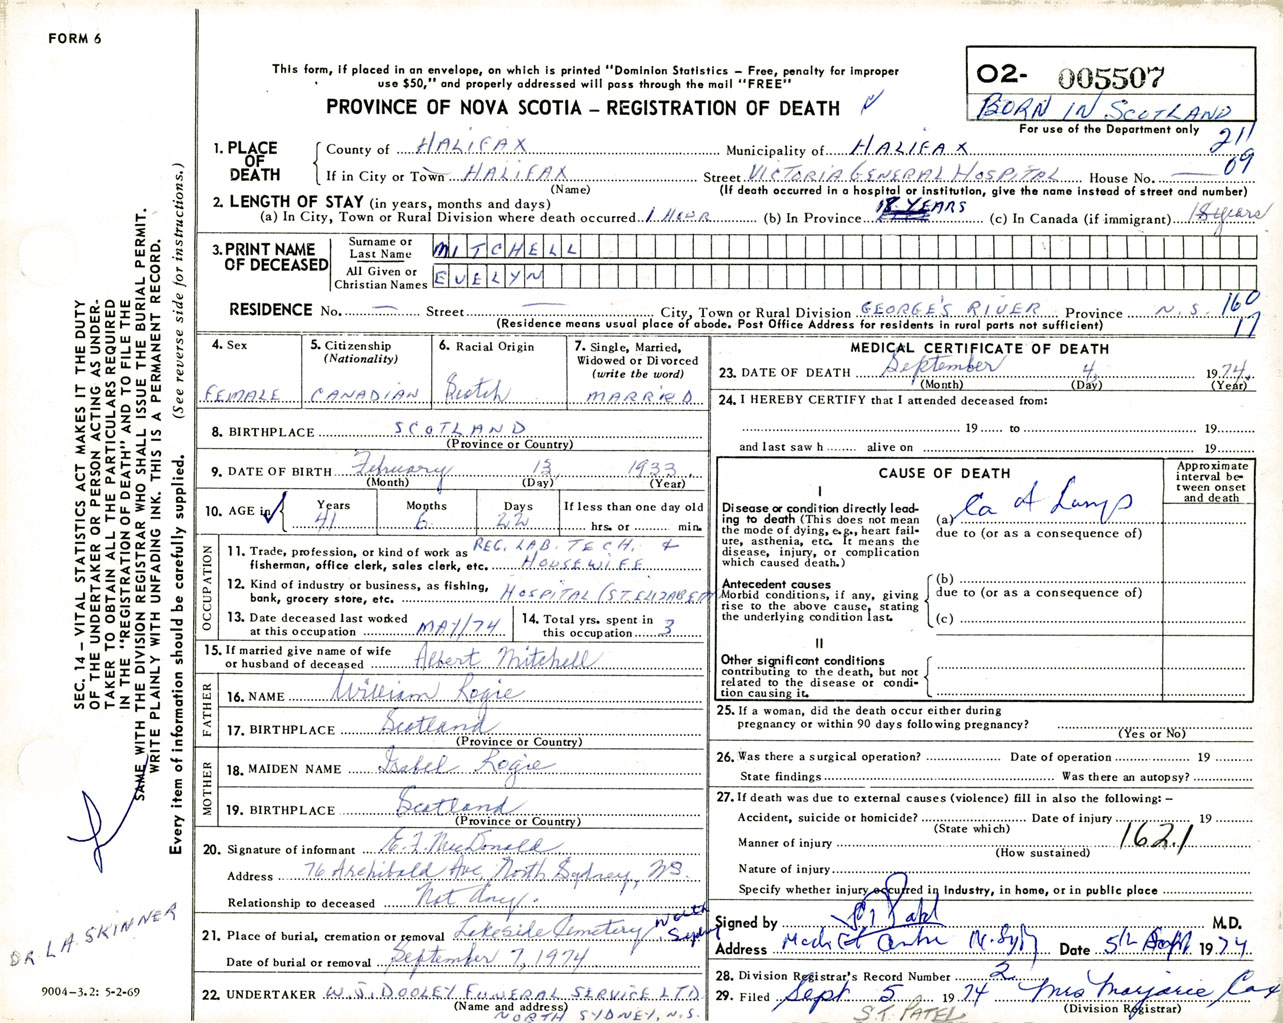 FORM 6
This form, if placed in an envelope, on which is printed "Dominion Statistics – Free, penalty for improper
use $50," and properly addressed will pass through the mail "FREE"
PROVINCE OF NOVA SCOTIA – REGISTRATION OF DEATH
02- 005507
BORN IN SCOTLAND
For use of the Department only
211
09
SEC. 14 – VITAL STATISTICS ACT MAKES IT THE DUTY
OF THE UNDERTAKER OR PERSON ACTING AS UNDER-
TAKER TO OBTAIN ALL THE PARTICULARS REQUIRED
IN THE "REGISTRATION OF DEATH" AND TO FILE THE
SAME WITH THE DIVISION REGISTRAR WHO SHALL ISSUE THE BURIAL PERMIT.
WRITE PLAINLY WITH UNFADING INK. THIS IS A PERMANENT RECORD.
Every item of information should be carefully supplied. (See reverse side for instructions.)
1. PLACE OF DEATH
County of HALIFAX Municipality of HALIFAX
If in City or Town HALIFAX Street VICTORIA GENERAL HOSPITAL House No. —
(Name) (If death occurred in a hospital or institution, give the name instead of street and number)
2. LENGTH OF STAY (in years, months and days)
(a) In City, Town or Rural Division where death occurred 1 HOUR (b) In Province 18 YEARS (c) In Canada (if immigrant) 18 years
3. PRINT NAME OF DECEASED
Surname or Last Name MITCHELL
All Given or Christian Names EVELYN
RESIDENCE No. — Street — City, Town or Rural Division GEORGE'S RIVER Province N.S. 160
17
(Residence means usual place of abode. Post Office Address for residents in rural parts not sufficient)
4. Sex
FEMALE
5. Citizenship
(Nationality)
CANADIAN
6. Racial Origin
Scotch
7. Single, Married,
Widowed or Divorced
(write the word)
MARRIED
8. BIRTHPLACE SCOTLAND
(Province or Country)
9. DATE OF BIRTH February 13 1933
(Month) (Day) (Year)
10. AGE in Years Months Days If less than one day old
41 6 22 hrs. or min.
OCCUPATION
11. Trade, profession, or kind of work as REG. LAB. TECH. &
fisherman, office clerk, sales clerk, etc. HOUSEWIFE
12. Kind of industry or business, as fishing,
bank, grocery store, etc. HOSPITAL (ST. ELIZABETH
13. Date deceased last worked
at this occupation MAY/74
14. Total yrs. spent in
this occupation 3
15. If married give name of wife
or husband of deceased Albert Mitchell
FATHER
16. NAME William Logie
17. BIRTHPLACE Scotland
(Province or Country)
MOTHER
18. MAIDEN NAME Isabel Logie
19. BIRTHPLACE Scotland
(Province or Country)
20. Signature of informant E. F. MacDonald
Address 76 Archibald Ave, North Sydney, NS.
Relationship to deceased Not any.
21. Place of burial, cremation or removal Lakeside Cemetery North Sydney
Date of burial or removal September 7, 1974
22. UNDERTAKER W. J. DOOLEY FUNERAL SERVICE LTD
(Name and address)
NORTH SYDNEY, N.S.
MEDICAL CERTIFICATE OF DEATH
23. DATE OF DEATH September 4 1974
(Month) (Day) (Year)
24. I HEREBY CERTIFY that I attended deceased from:
19 to 19
and last saw h alive on 19
CAUSE OF DEATH
Approximate interval between onset and death
I
Disease or condition directly lead-
ing to death (This does not mean
the mode of dying, e.g., heart fail-
ure, asthenia, etc. It means the
disease, injury, or complication
which caused death.)
(a) Ca of Lungs
due to (or as a consequence of)
Antecedent causes
Morbid conditions, if any, giving
rise to the above cause, stating
the underlying condition last.
(b)
due to (or as a consequence of)
(c)
II
Other significant conditions
contributing to the death, but not
related to the disease or condi-
tion causing it.
25. If a woman, did the death occur either during
pregnancy or within 90 days following pregnancy?
(Yes or No)
26. Was there a surgical operation? Date of operation 19
State findings Was there an autopsy?
27. If death was due to external causes (violence) fill in also the following: –
Accident, suicide or homicide? Date of injury 19
(State which)
Manner of injury 162.1
(How sustained)
Nature of injury
Specify whether injury occurred in industry, in home, or in public place
Signed by Patel M.D.
Address Med Centre N. Syd Date 5th Sept 1974
28. Division Registrar's Record Number 2
29. Filed Sept 5 1974 Mrs Marjorie Cox
(Division Registrar)
S.T. PATEL
DR. L.A. SKINNER
9004–3.2: 5-2-69